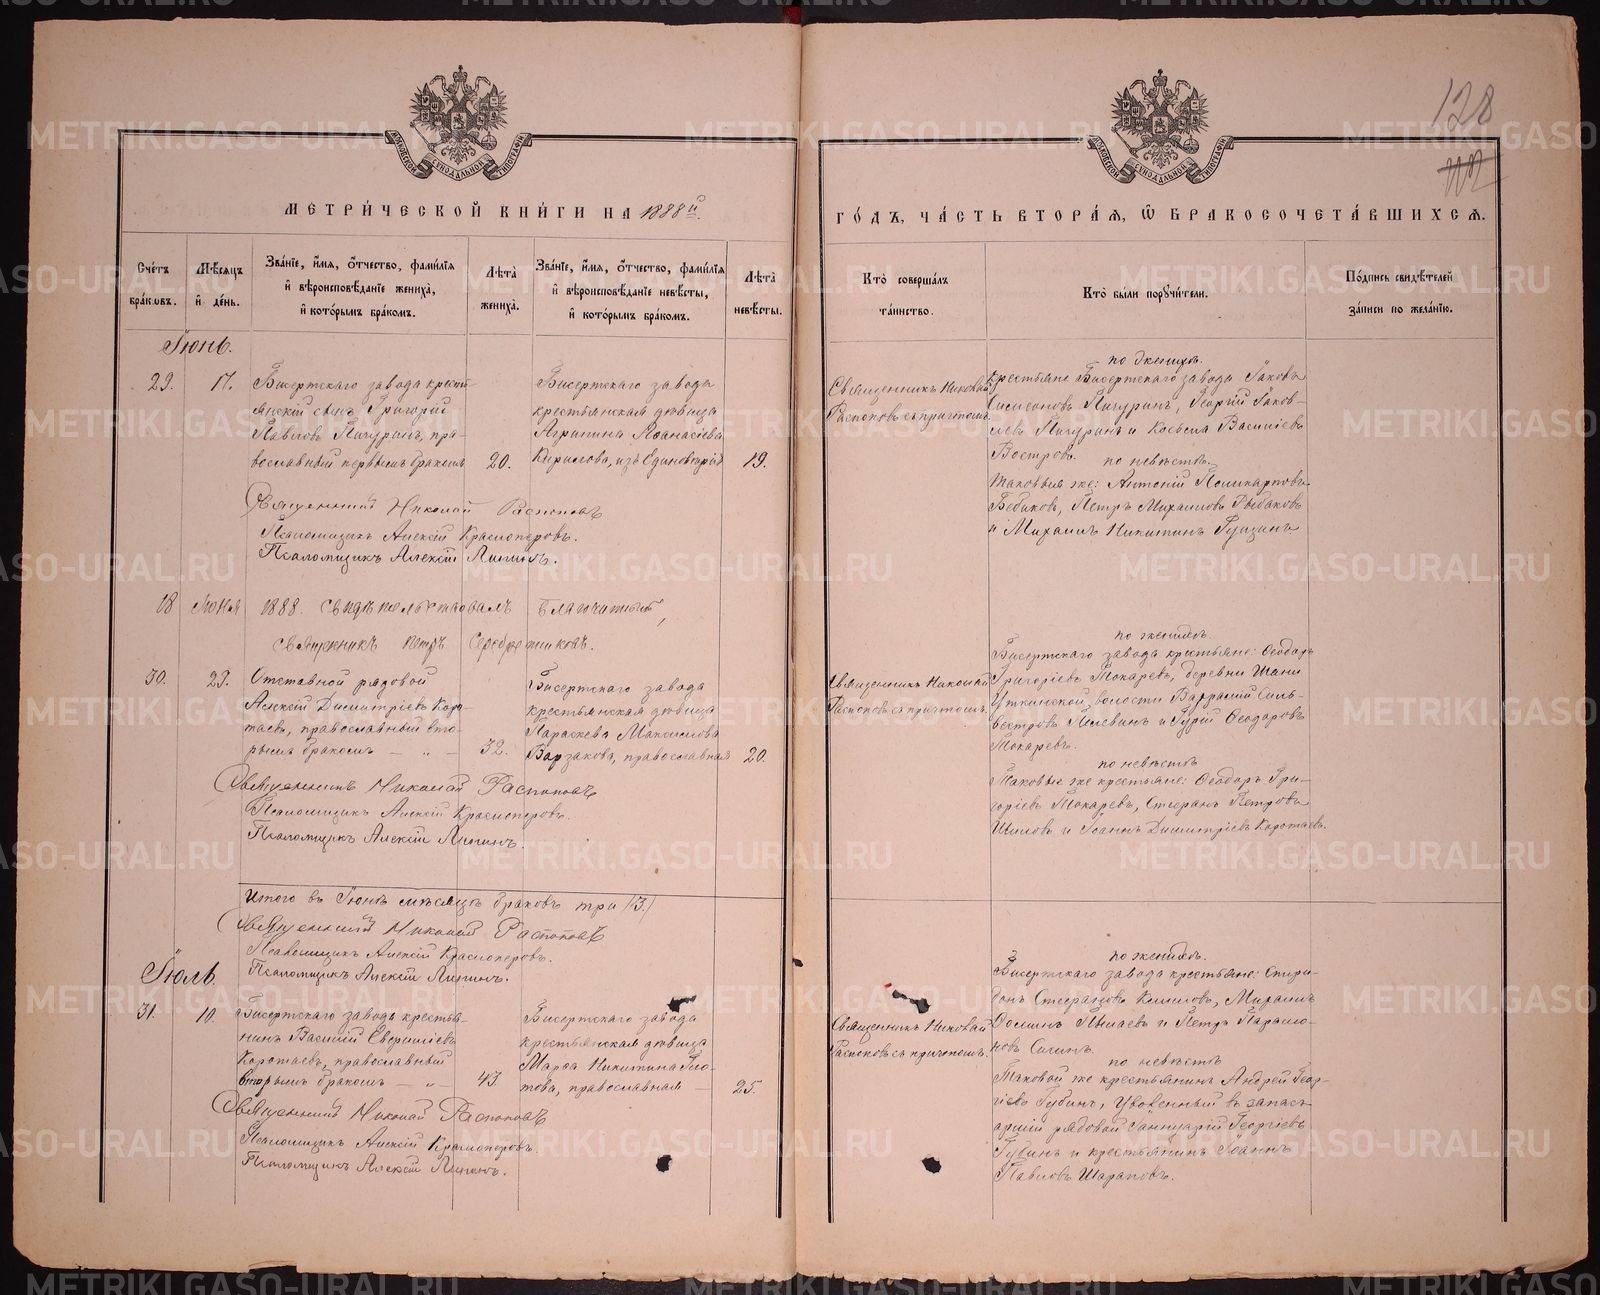 128
МЕТРИ́ЧЕСКОЙ КНИ́ГИ НА 1888 й
ГО́ДЪ, ЧА́СТЬ ВТОРА́Я, Ѡ БРАКОСОЧЕТА́ВШИХСЯ.
Сче́тъ бра́ковъ.
Мѣ́сяцъ и́ де́нь.
Зва́нїе, и́мя, ѻ́тчество, фами́лїя и́ вѣроисповѣ́данїе жениха̀, и́ кото́рымъ бра́комъ.
Лѣта̀ жениха̀.
Зва́нїе, и́мя, ѻ́тчество, фами́лїя и́ вѣроисповѣ́данїе невѣ́сты, и́ кото́рымъ бра́комъ.
Лѣта̀ невѣ́сты.
Кто̀ соверша́лъ та́инство.
Кто̀ бы́ли порꙋчи́тели.
По́дпись свидѣ́телей за́писи по жела́нїю.
Іюнь.
29.
17.
Бисертскаго завода кресть-
янскій сынъ Григорій
Павловъ Пичугинъ, пра-
вославный первымъ бракомъ
20.
Бисертскаго завода
крестьянская дѣвица
Агрипина Аѳанасіева
Кирилова, изъ Единовѣрія
19.
Священникъ Николай
Распоповъ съ причтомъ.
по женихѣ.
крестьяне Бисертскаго завода Іаковъ
Пичугинъ, Георгій Іаков-
левъ Пичугинъ и Косьма Василіевъ
Востровъ.
по невѣстѣ.
таковые же: Антоній Поликарповъ
Бабиковъ, Петръ Михаиловъ Рыбаковъ
и Михаилъ Никитинъ
Священникъ Николай Распоповъ
Псаломщикъ Алексій Красноперовъ.
Псаломщикъ Алексій Липинъ.
18 Іюня 1888. свидѣтельствовалъ Благочинный,
священникъ Петръ Серебренниковъ.
30.
29.
Отставной рядовой
Алексій Димитріевъ Коро-
таевъ, православный вто-
рымъ бракомъ — „ —
32.
Бисертскаго завода
крестьянская дѣвица
Параскева Максимова
Варзакова, православная
20.
Священникъ Николай
Распоповъ съ причтомъ.
по женихѣ.
Бисертскаго завода крестьяне: Ѳеодоръ
Григоріевъ Токаревъ, деревни
Уткинской волости Варламій Силь-
вестровъ и Гурій Ѳеодоровъ
Токаревъ.
по невѣстѣ
Таковые же крестьяне: Ѳеодоръ Гри-
горіевъ Токаревъ, Стефанъ Петровъ
Шиловъ и Іоаннъ Димитріевъ Коротаевъ.
Священникъ Николай Распоповъ
Псаломщикъ Алексій Красноперовъ.
Псаломщикъ Алексій Липинъ.
Итого въ Іюнѣ мѣсяцѣ браковъ три /3./
Священникъ Николай Распоповъ
Псаломщикъ Алексій Красноперовъ.
Псаломщикъ Алексій Липинъ.
Іюль.
31.
10.
Бисертскаго завода крестья-
нинъ Василій
Коротаевъ, православный
вторымъ бракомъ — „ —
43
Бисертскаго завода
крестьянская дѣвица
Марѳа Никитина Гло-
това, православная —
25.
Священникъ Николай
Распоповъ съ причтомъ.
по женихѣ.
Бисертскаго завода крестьяне: Спири-
донъ Стефановъ Михаилъ
и Петръ
по невѣстѣ
Таковой же крестьянинъ Андрей Геор-
гіевъ Губинъ, Уволенный въ запасъ
арміи рядовой Іаннуарій Георгіевъ
Губинъ и крестьянинъ Іоаннъ
Павловъ Шараповъ.
Священникъ Николай Распоповъ
Псаломщикъ Алексій Красноперовъ.
Псаломщикъ Алексій Липинъ.
METRIKI.GASO-URAL.RU